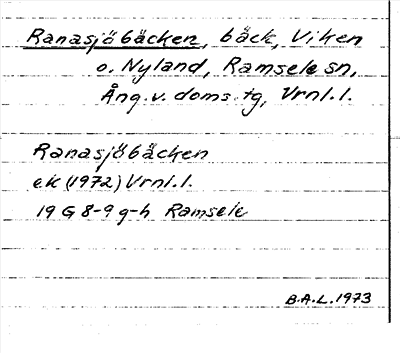 Ranasjöbäcken, bäck, Viken
o. Nyland, Ramsele sn,
Ång. v. doms. tg, Vrnl. l.
Ranasjöbäcken
ek (1972) Vrnl. l.
19 G 8-9 g-h Ramsele
B.A.L. 1973